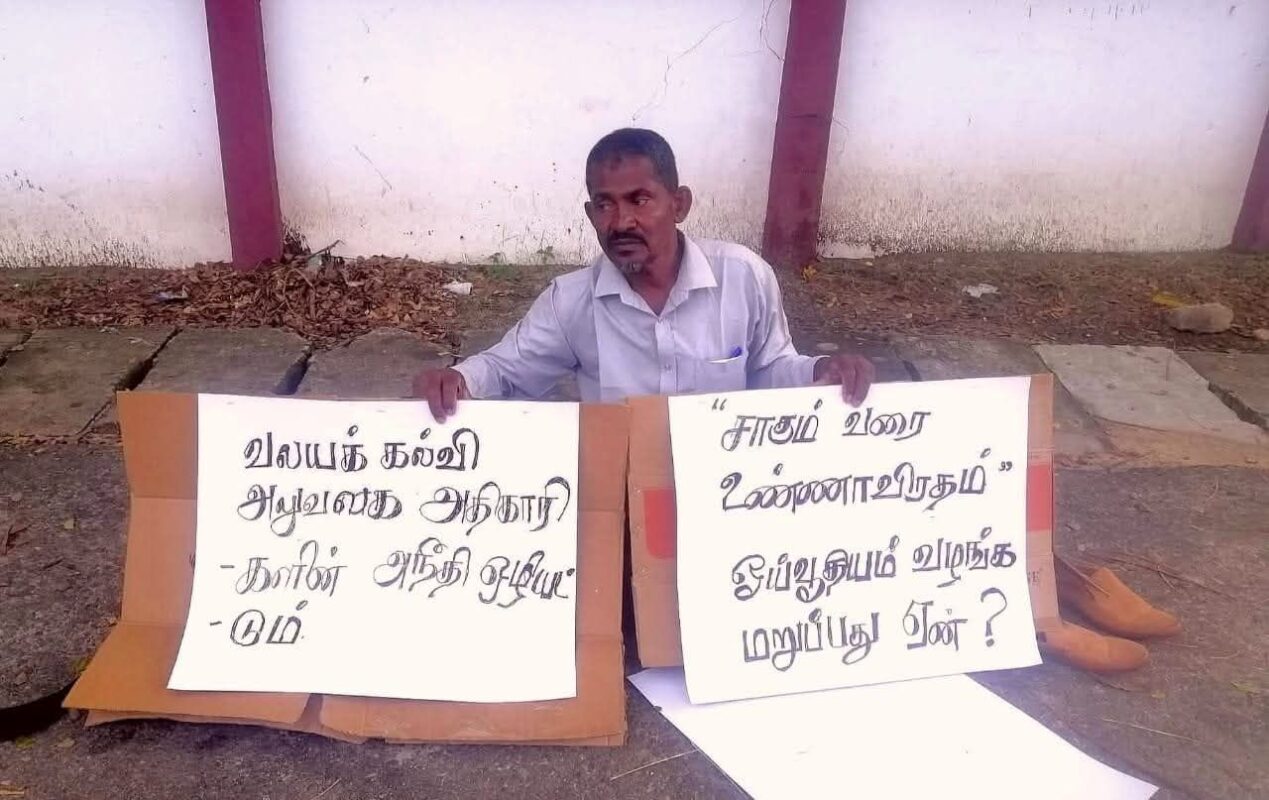 வலயக் கல்வி
அலுவலக அதிகாரி
-களின் அநீதி ஒழியட்
-டும்.
"சாகும் வரை
உண்ணாவிரதம்"
ஓய்வூதியம் வழங்க
மறுப்பது ஏன்?